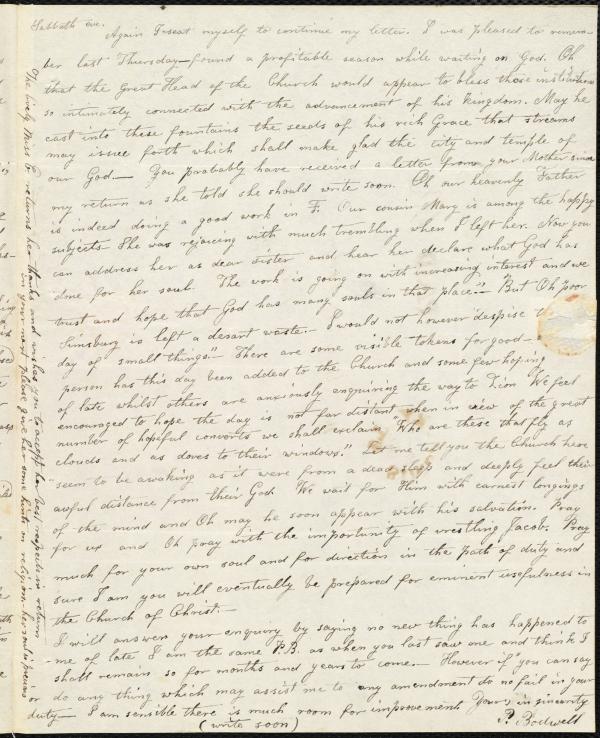 Sabbath eve.
Again I seat myself to continue my letter. I was pleased to remem-
ber last Thursday—found a profitable season while waiting on God. Oh
that the Great Head of the Church would appear to bless those institutions
so intimately connected with the advancement of his kingdom. May he
cast into these fountains the seeds of his rich Grace that streams
may issue forth which shall make glad the city and temple of
our God.— You probably have received a letter from your Mother since
my return as she told she should write soon. Oh our heavenly Father
is indeed doing a good work in F. Our cousin Mary is among the happy
subjects She was rejoicing with much trembling when I left her. Now you
can address her as dear sister and hear her declare what God has
done for her soul. The work is going on with increasing interest and we
trust and hope that God has many souls in that place."— But Oh poor
Simsbury is left a desart waste.— I would not however despise
day of small things.— There are some visible tokens for good.—
person has this day been added to the Church and some few hoping
of late whilst others are anxiously enquiring the way to Zion We feel
encouraged to hope the day is not far distant when in view of the great
number of hopeful converts we shall exclaim "Who are these that fly as
clouds and as doves to their windows." Let me tell you the Church here
"seem to be awaking as it were from a dead sleep and deeply feel their
awful distance from their God. We wait for Him with earnest longings
of the mind and Oh may he soon appear with his salvation. Pray
for us and Oh pray with the importunity of wrestling Jacob. Pray
much for your own soul and for direction in the path of duty and
sure I am you will eventually be prepared for eminent usefulness in
the Church of Christ.—
I will answer your enquiry by saying no new thing has happened to
me of late I am the same P.B. as when you last saw one and think I
shall remain so for months and years to come.— However if you can say
or do any thing which may assist me to any amendment do no fail in your
duty— I am sensible there is much room for improvement Yours in sincerity
(write soon) P. Bodwell
Miss B returns her thanks and wishes you to accept her best respects in return
In your next please give her some hints on religion— her soul is precious